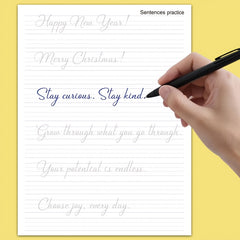 Sentences practice
Happy New Year!
Merry Christmas!
Stay curious. Stay kind.
Grow through what you go through.
Your potential is endless.
Choose joy, every day.